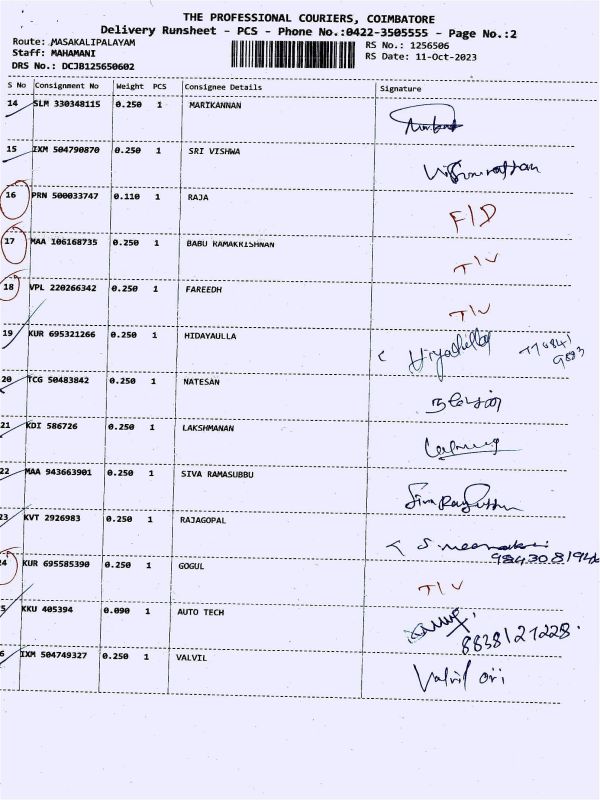 THE PROFESSIONAL COURIERS, COIMBATORE
Delivery Runsheet - PCS - Phone No.:0422-3505555 - Page No.:2
Route: MASAKALIPALAYAM
Staff: MAHAMANI
DRS No.: DCJB125650602
RS No.: 1256506
RS Date: 11-Oct-2023
S No Consignment No Weight PCS Consignee Details Signature
14 SLM 330348115 0.250 1 MARIKANNAN
15 IXM 504790870 0.250 1 SRI VISHWA
16 PRN 500033747 0.110 1 RAJA F/D
17 MAA 106168735 0.250 1 BABU RAMAKRISHNAN T/V
18 VPL 220266342 0.250 1 FAREEDH T/V
19 KUR 695321266 0.250 1 HIDAYAULLA
20 TCG 50483842 0.250 1 NATESAN
21 KDI 586726 0.250 1 LAKSHMANAN
22 MAA 943663901 0.250 1 SIVA RAMASUBBU
23 KVT 2926983 0.250 1 RAJAGOPAL
24 KUR 695585390 0.250 1 GOGUL T/V
5 KKU 405394 0.090 1 AUTO TECH
8838127228.
6 IXM 504749327 0.250 1 VALVIL Valvil Ori